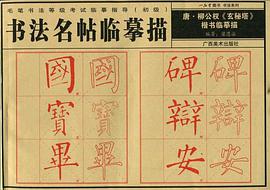 毛笔书法等级考试临摹指导（初级）
书法名帖临摹描
唐·柳公权《玄秘塔》
楷书临摹描
广西美术出版社
國 國 碑 碑
寶 寶 辯 辯
畢 畢 安 安